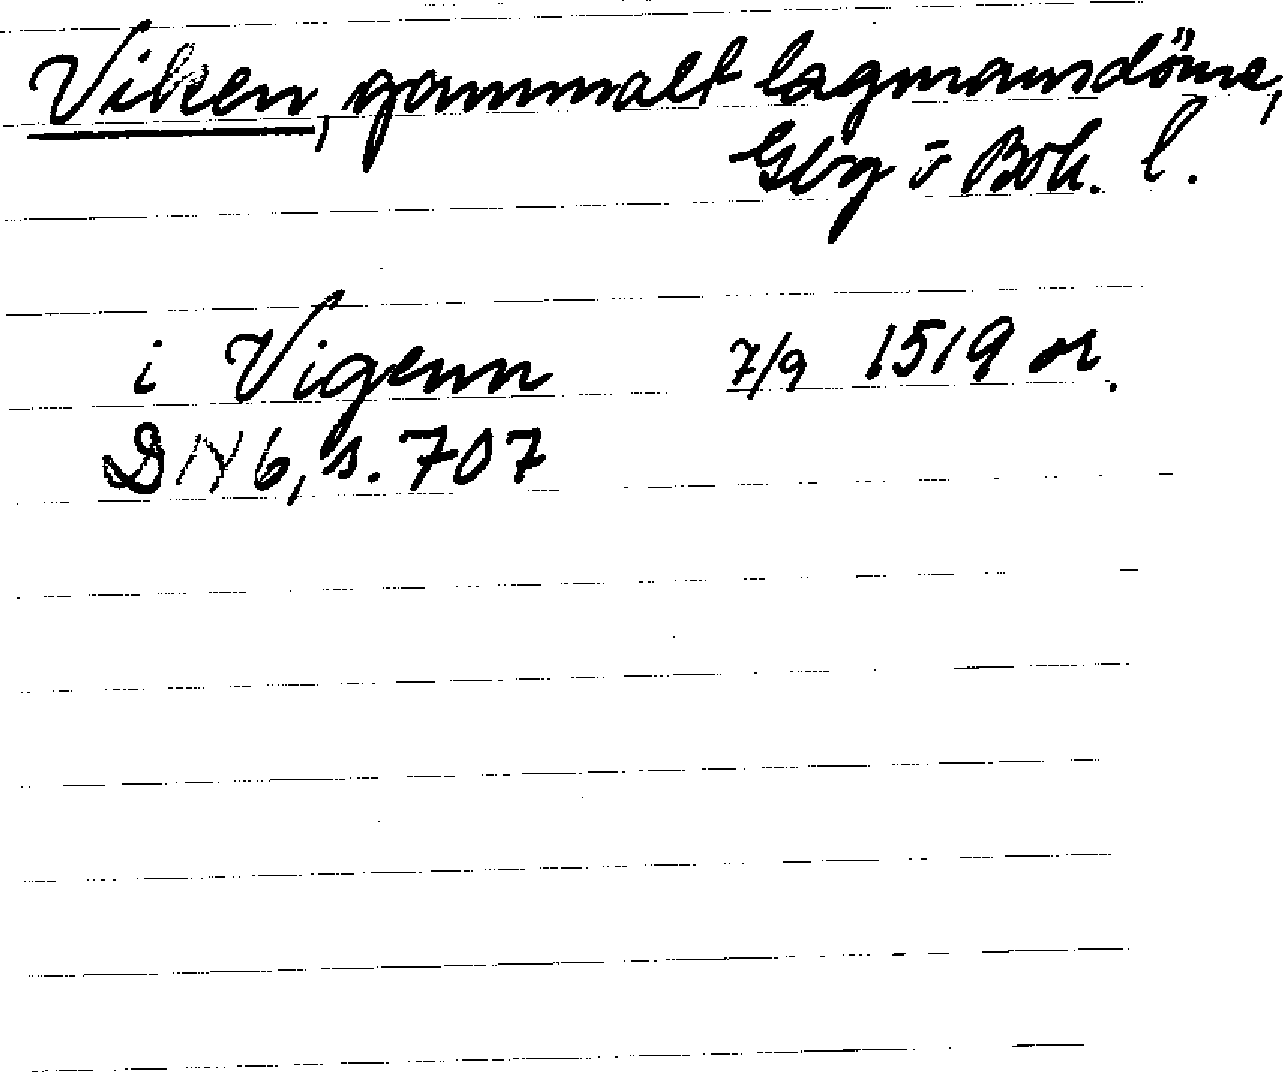 Viken, gammalt lagmansdöme,
Gbg o Boh. l.
i Vigenn 7/9 1519 or.
DN 6, s. 707